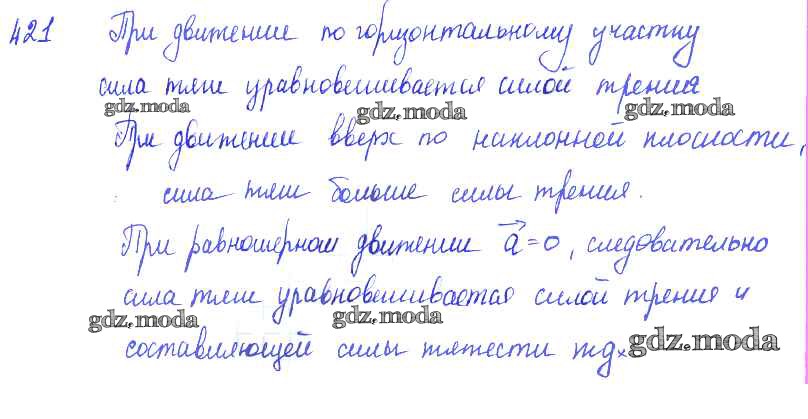 421 При движении по горизонтальному участку
сила тяги уравновешивается силой трения
gdz.moda gdz.moda gdz.moda
При движении вверх по наклонной плоскости,
сила тяги больше силы трения.
При равномерном движении a⃗=0, следовательно
сила тяги уравновешивается силой трения и
gdz.moda gdz.moda
составляющей силы тяжести mgₓ gdz.moda